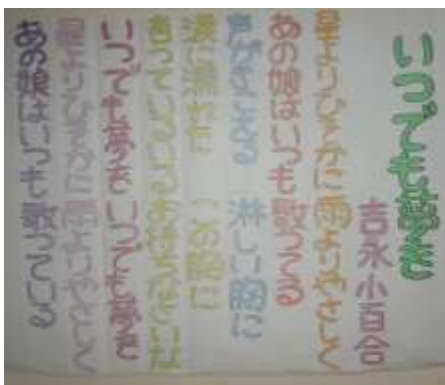 いつでも夢を
吉永小百合
星よりひそかに 雨よりやさしく
あの娘はいつも 歌ってる
声がきこえる 淋しい胸に
涙に濡れた この胸に
言っているいる お持ちなさいな
いつでも夢を いつでも夢を
星よりひそかに 雨よりやさしく
あの娘はいつも 歌っている